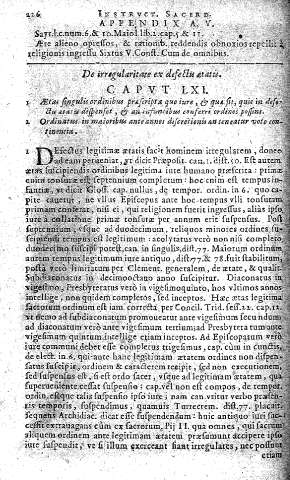 226 INSTRUCT. SACERD.
APPENDIX A. V.
Sayr. l. c. num. 6. & 10. Maiol. lib. 2. cap. 5. & 15.
Ære alieno oppressos, & rationib. reddendis obnoxios repelli à
religionis ingressu Sixtus V. Const. Cum de omnibus.
De irregularitate ex defectu ætatis.
CAPVT LXI.
1 Ætas singulis ordinibus præscripta quo iure, & quæ sit, quis in
ætatis dispenset, & an infantibus conferri ordines possint.
2 Ordinatus in maioribus ante annos discretionis an teneatur voto continentiæ.
1 DEfectus legitimæ ætatis facit hominem irregularem, donec
ad eam perueniat, vt dicit Præposit. can. 1. dist. 50. Est autem
ætas suscipiendis ordinibus legitima iure humano præscripta: prima
tonsura ætas est septennium completum: hoc enim est tempus infantiæ,
vt dicit Gloss. cap. nullus, de tempor. ordin. in 6. quo
caret, ne vllus Episcopus ante hoc tempus vlli tonsuram
primam conferat, nisi ei, qui religionem fuerit ingressus, aliàs ipso
iure à collatione primæ tonsuræ per annum erit suspensus. Post
septennium, vsque ad duodecimum, reliquos minores ordines
duodecimo suscipi potest. can. in singulis, dist. 77. Maiorum ordinum,
autem tempus legitimum iure antiquo, dist. 77. & 78. fuit stabilitum,
postea verò limitatum per Clement. generalem, de ætate, & qualit.
Subdiaconatus in decimooctauo anno suscipitur. Diaconatus in
vigesimo, Presbyteratus verò in vigesimoquinto, hos vltimos annos
intellige, non quidem completos, sed inceptos. Hæc ætas legitima
sacrorum ordinum est iam correcta per Concil. Trid. sess. 23. cap. 12.
vt demo ad subdiaconatum promoueatur ante vigesimum secundum,
ad diaconatum verò ante vigesimum tertium, ad Presbyteratum
ante vigesimum quintum intellige etiam inceptos. Ad Episcopatum verò
iure communi debet esse completus trigesimus, cap. cùm in cunctis,
de elect. in 6. qui note hanc legitimam ætatem ordines non dispensatus
suscipit, ordinem & caracterem recipit, sed non executionem,
sed suspensus est, si est ordo sacer, vsque ad legitimam ætatem, qua
superueniente cessat suspensio: cap. vel non est compos, de tempor.
ordin. estque talis suspensio ipso iure: nam can. vitur verbo præsentis
temporis, suspendimus, quamuis Turrecrem. dist. 77. placuit,
sequens Archidiac. dicat esse suspendendum: huic antiquo iuri successit
extrauagans cùm ex sacrorum, Pij II. qua omnes, qui sacrum
aliquem ordinem ante legitimam ætatem præsumunt accipere ipso
iure suspendit, vt si illum exerceant fiant irregulares, nec possunt
etiam